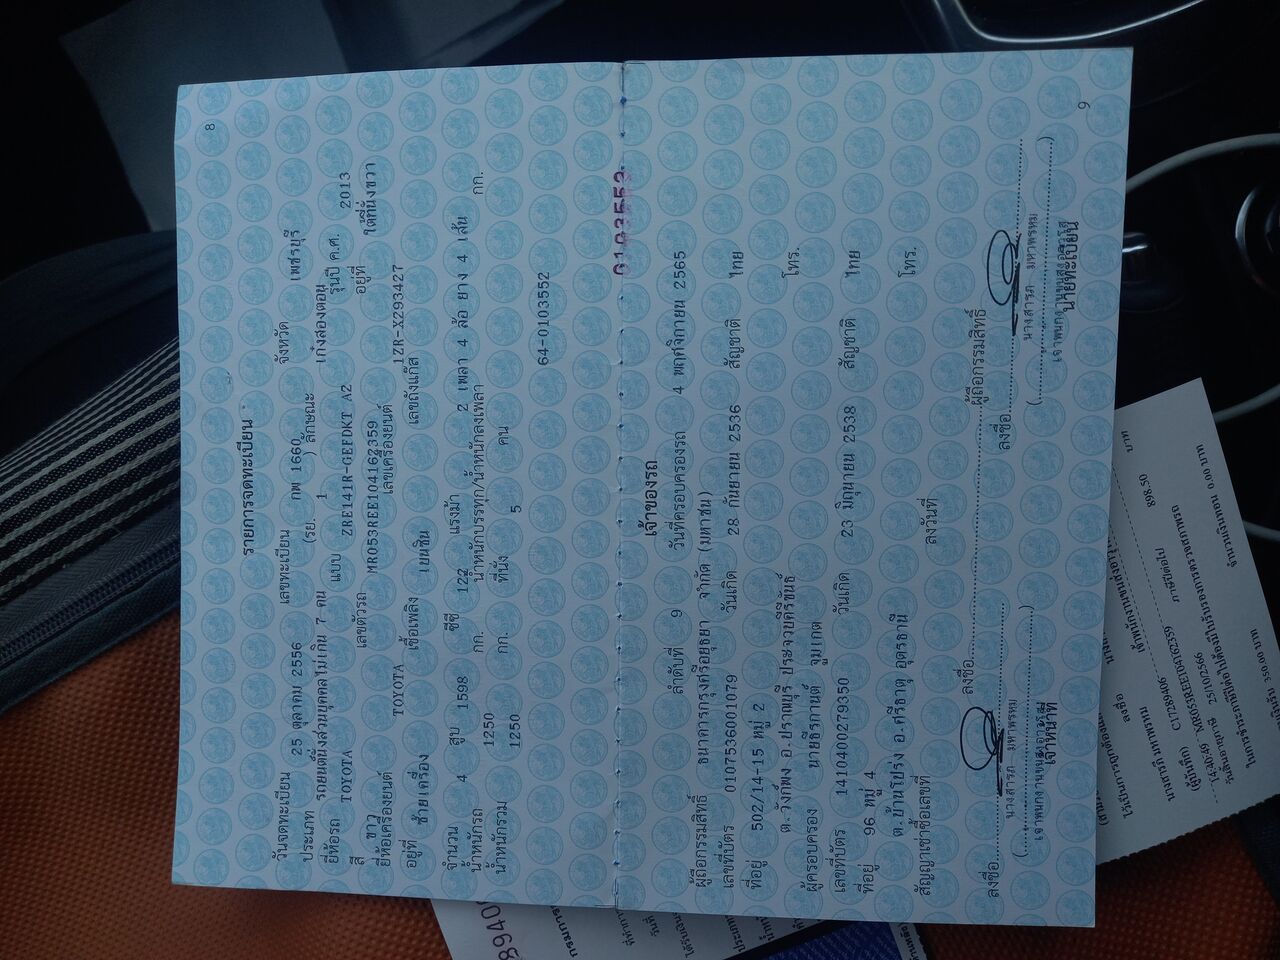 8
รายการจดทะเบียน
วันจดทะเบียน 25 ตุลาคม 2556 เลขทะเบียน กพ 1660 จังหวัด เพชรบุรี
ประเภท รถยนต์นั่งส่วนบุคคลไม่เกิน 7 คน (รย. 1 ) ลักษณะ เก๋งสองตอน
ยี่ห้อรถ TOYOTA แบบ ZRE141R-GEFDKT A2 รุ่นปี ค.ศ. 2013
สี ขาว เลขตัวรถ MR053REE104162359 อยู่ที่ ใต้ที่นั่งขวา
ยี่ห้อเครื่องยนต์ TOYOTA เลขเครื่องยนต์ 1ZR-X293427
อยู่ที่ ซ้ายเครื่อง เชื้อเพลิง เบนซิน เลขถังแก๊ส
จำนวน 4 สูบ 1598 ซีซี 122 แรงม้า 2 เพลา 4 ล้อ ยาง 4 เส้น
น้ำหนักรถ 1250 กก. น้ำหนักบรรทุก/น้ำหนักลงเพลา กก.
น้ำหนักรวม 1250 กก. ที่นั่ง 5 คน
64-0103552
0103552
เจ้าของรถ
ลำดับที่ 9 วันที่ครอบครองรถ 4 พฤศจิกายน 2565
ผู้ถือกรรมสิทธิ์ ธนาคารกรุงศรีอยุธยา จำกัด (มหาชน)
เลขที่บัตร 0107536001079 วันเกิด 28 กันยายน 2536 สัญชาติ ไทย
ที่อยู่ 502/14-15 หมู่ 2
ต.วังก์พง อ.ปราณบุรี ประจวบคีรีขันธ์ โทร.
ผู้ครอบครอง นายธีรกานต์ จูมเกตุ
เลขที่บัตร 1410400279350 วันเกิด 23 มิถุนายน 2538 สัญชาติ ไทย
ที่อยู่ 96 หมู่ 4
ต.บ้านโปร่ง อ.ศรีธาตุ อุดรธานี โทร.
สัญญาเช่าซื้อเลขที่ ลงวันที่
ผู้ถือกรรมสิทธิ์
ลงชื่อ ลงชื่อ ลงชื่อ
นางสารภี มหาพรหม นางสารภี มหาพรหม
เจ้าพนักงานขนส่งอาวุโส เจ้าพนักงานขนส่งอาวุโส
เจ้าหน้าที่ นายทะเบียน
9
นางสารภี มหาพรหม
(ผู้บันทึก) C17289406
14:40:49 MR053REE104162359
วันสิ้นอายุภาษี 25/10/2566
898.50 บาท
350.00 บาท
0.00 บาท